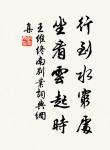 行到水窮處
坐看雲起時
王維終南別業詞典網
集